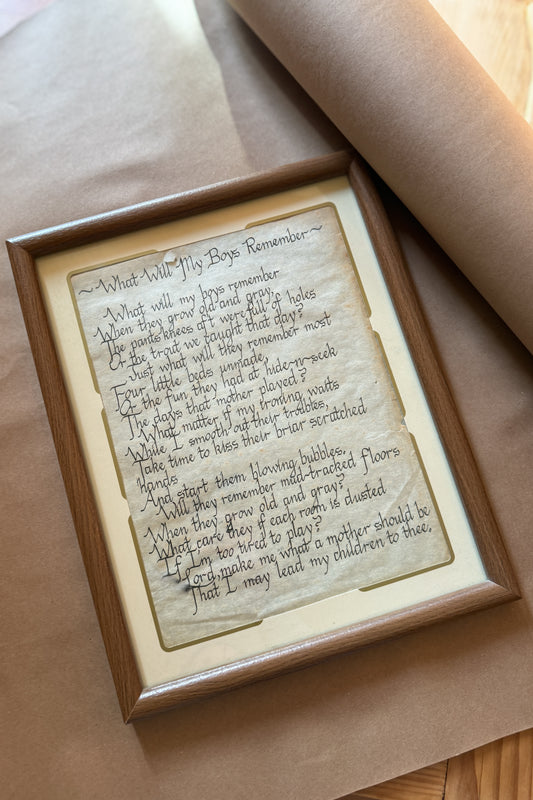 ~What Will My Boys Remember~
What will my boys remember
When they grow old and gray,
The pants knees oft were full of holes
Or the trout we caught that day?
Just what will they remember most
Four little beds unmade,
Or the fun they had at hide-n-seek
The days that mother played?
What matter if my ironing waits
While I smooth out their troubles,
Take time to kiss their briar scratched
hands
And start them blowing bubbles.
Will they remember mud-tracked floors
When they grow old and gray?
What care they if each room is dusted
If I'm too tired to play?
Lord, make me what a mother should be
That I may lead my children to thee.